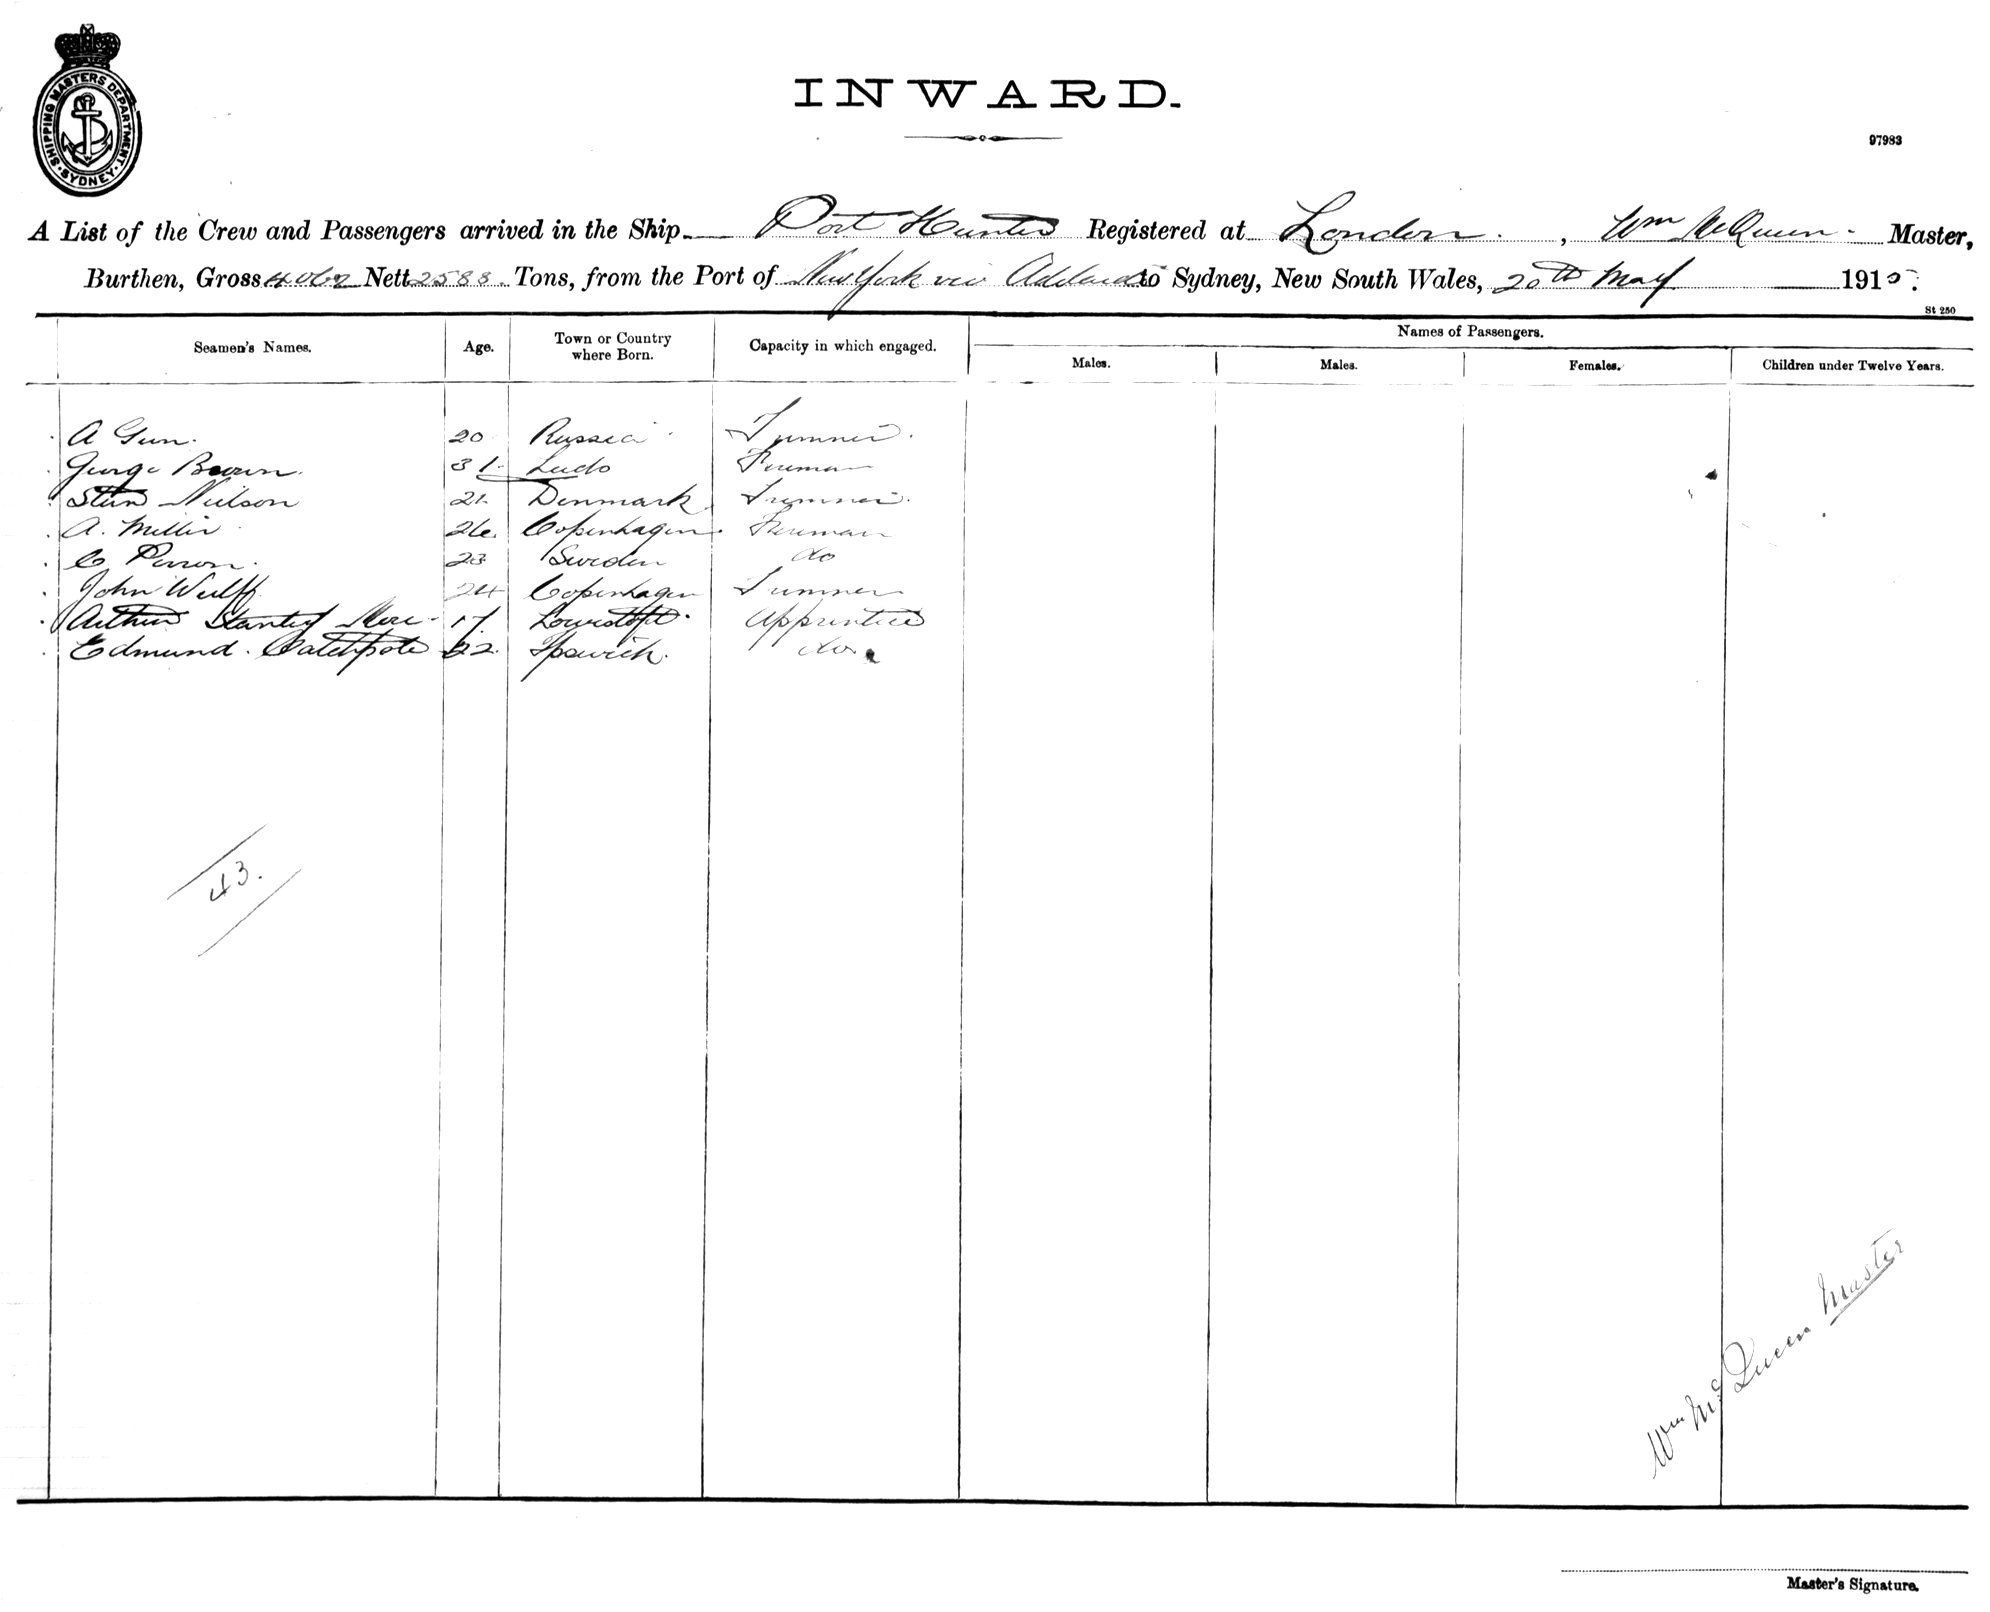 SHIPPING MASTERS DEPARTMENT · SYDNEY ·
INWARD.
97983
A List of the Crew and Passengers arrived in the Ship Port Hunter Registered at London. , Wm McQueen. Master,
Burthen, Gross Nett 2588 Tons, from the Port of New York via Adelaide to Sydney, New South Wales, 20th May 1915.
St 250
Seamen's Names. Age. Town or Country where Born. Capacity in which engaged. Names of Passengers.
Males. Males. Females. Children under Twelve Years.
A Gun. 20 Russia Trimmer.
George Brown. 31 Fireman
Nielson 21 Denmark Trimmer.
A. Miller 26 Copenhagen Fireman
C 23 Sweden do
John Wulff 24 Copenhagen Trimmer
Arthur Stanley 17. Lowestoft. Apprentice
Edmund. Catchpole 22. Ipswich. do.
43.
Wm McQueen Master
Master's Signature.